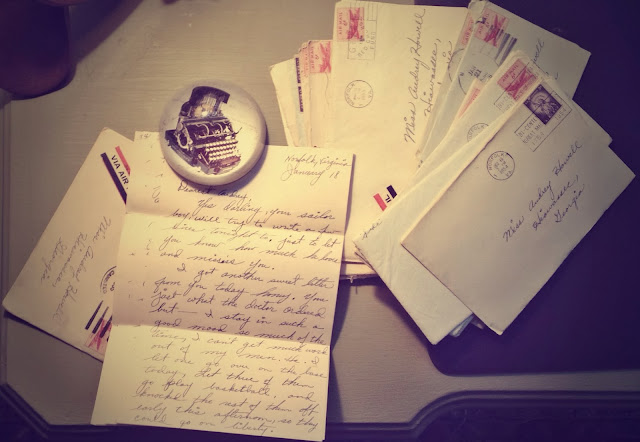 Norfolk, Virginia
January 18
Dear
Yes Darling, your sailor
boy will try to write a few
lines tonight to just to let
you know how much he loves
and misses you.
I got another sweet letter
from you today honey. You
just what the doctor ordered
but — I stay in such a
good mood so much of the
time, I can't get much work
out of my men. Ha. I
let one go over on the base
today, let three of them
go play basketball, and
knocked the rest of them off
early this afternoon, so they
could go on liberty.
VIA AIR
Miss Audrey Howell
Hiawassee,
Georgia
Miss Audrey Howell
Hiawassee,
Miss Audrey Howell
Hiawassee,
Georgia